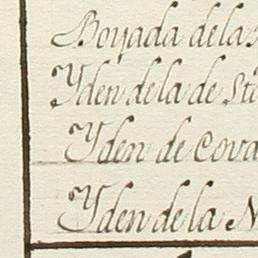 Boyada de la
Yden de la de Sta
Yden de Cova
Yden de la N